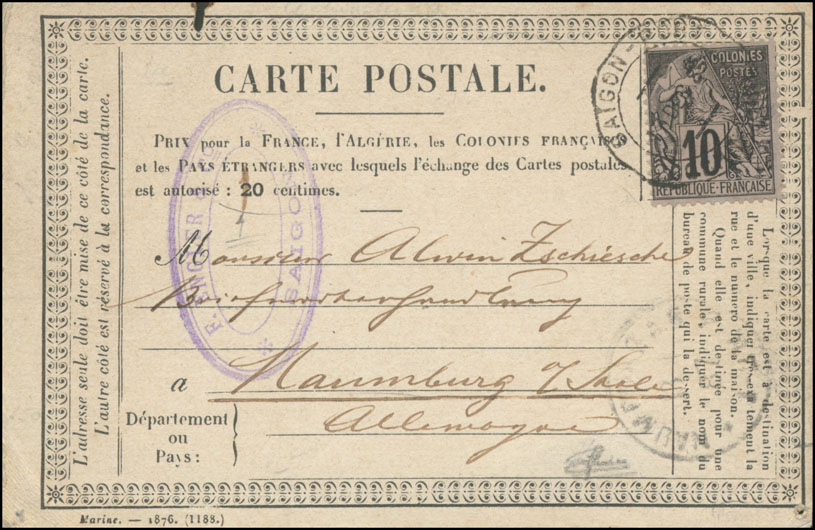 CARTE POSTALE.
PRIX pour la FRANCE, l'ALGÉRIE, les COLONIES FRANÇAISES
et les PAYS ÉTRANGERS avec lesquels l'échange des Cartes postales
est autorisé : 20 centimes.
Monsieur Alwin Zschiesche
Briefmarkenhandlung
a Naumburg a/Saale
Allemagne
Département
ou
Pays :
L'adresse seule doit être mise de ce côté de la carte.
L'autre côté est réservé à la correspondance.
Lorsque la carte est à destination
d'une ville, indiquer exactement la
rue et le numéro de la maison.
Quand elle est destinée pour une
commune rurale, indiquer le nom du
bureau de poste qui la dessert.
COLONIES
POSTES
10
RÉPUBLIQUE FRANÇAISE
SAIGON
SAIGON
NAUMBURG
Marine. — 1876. (1188.)